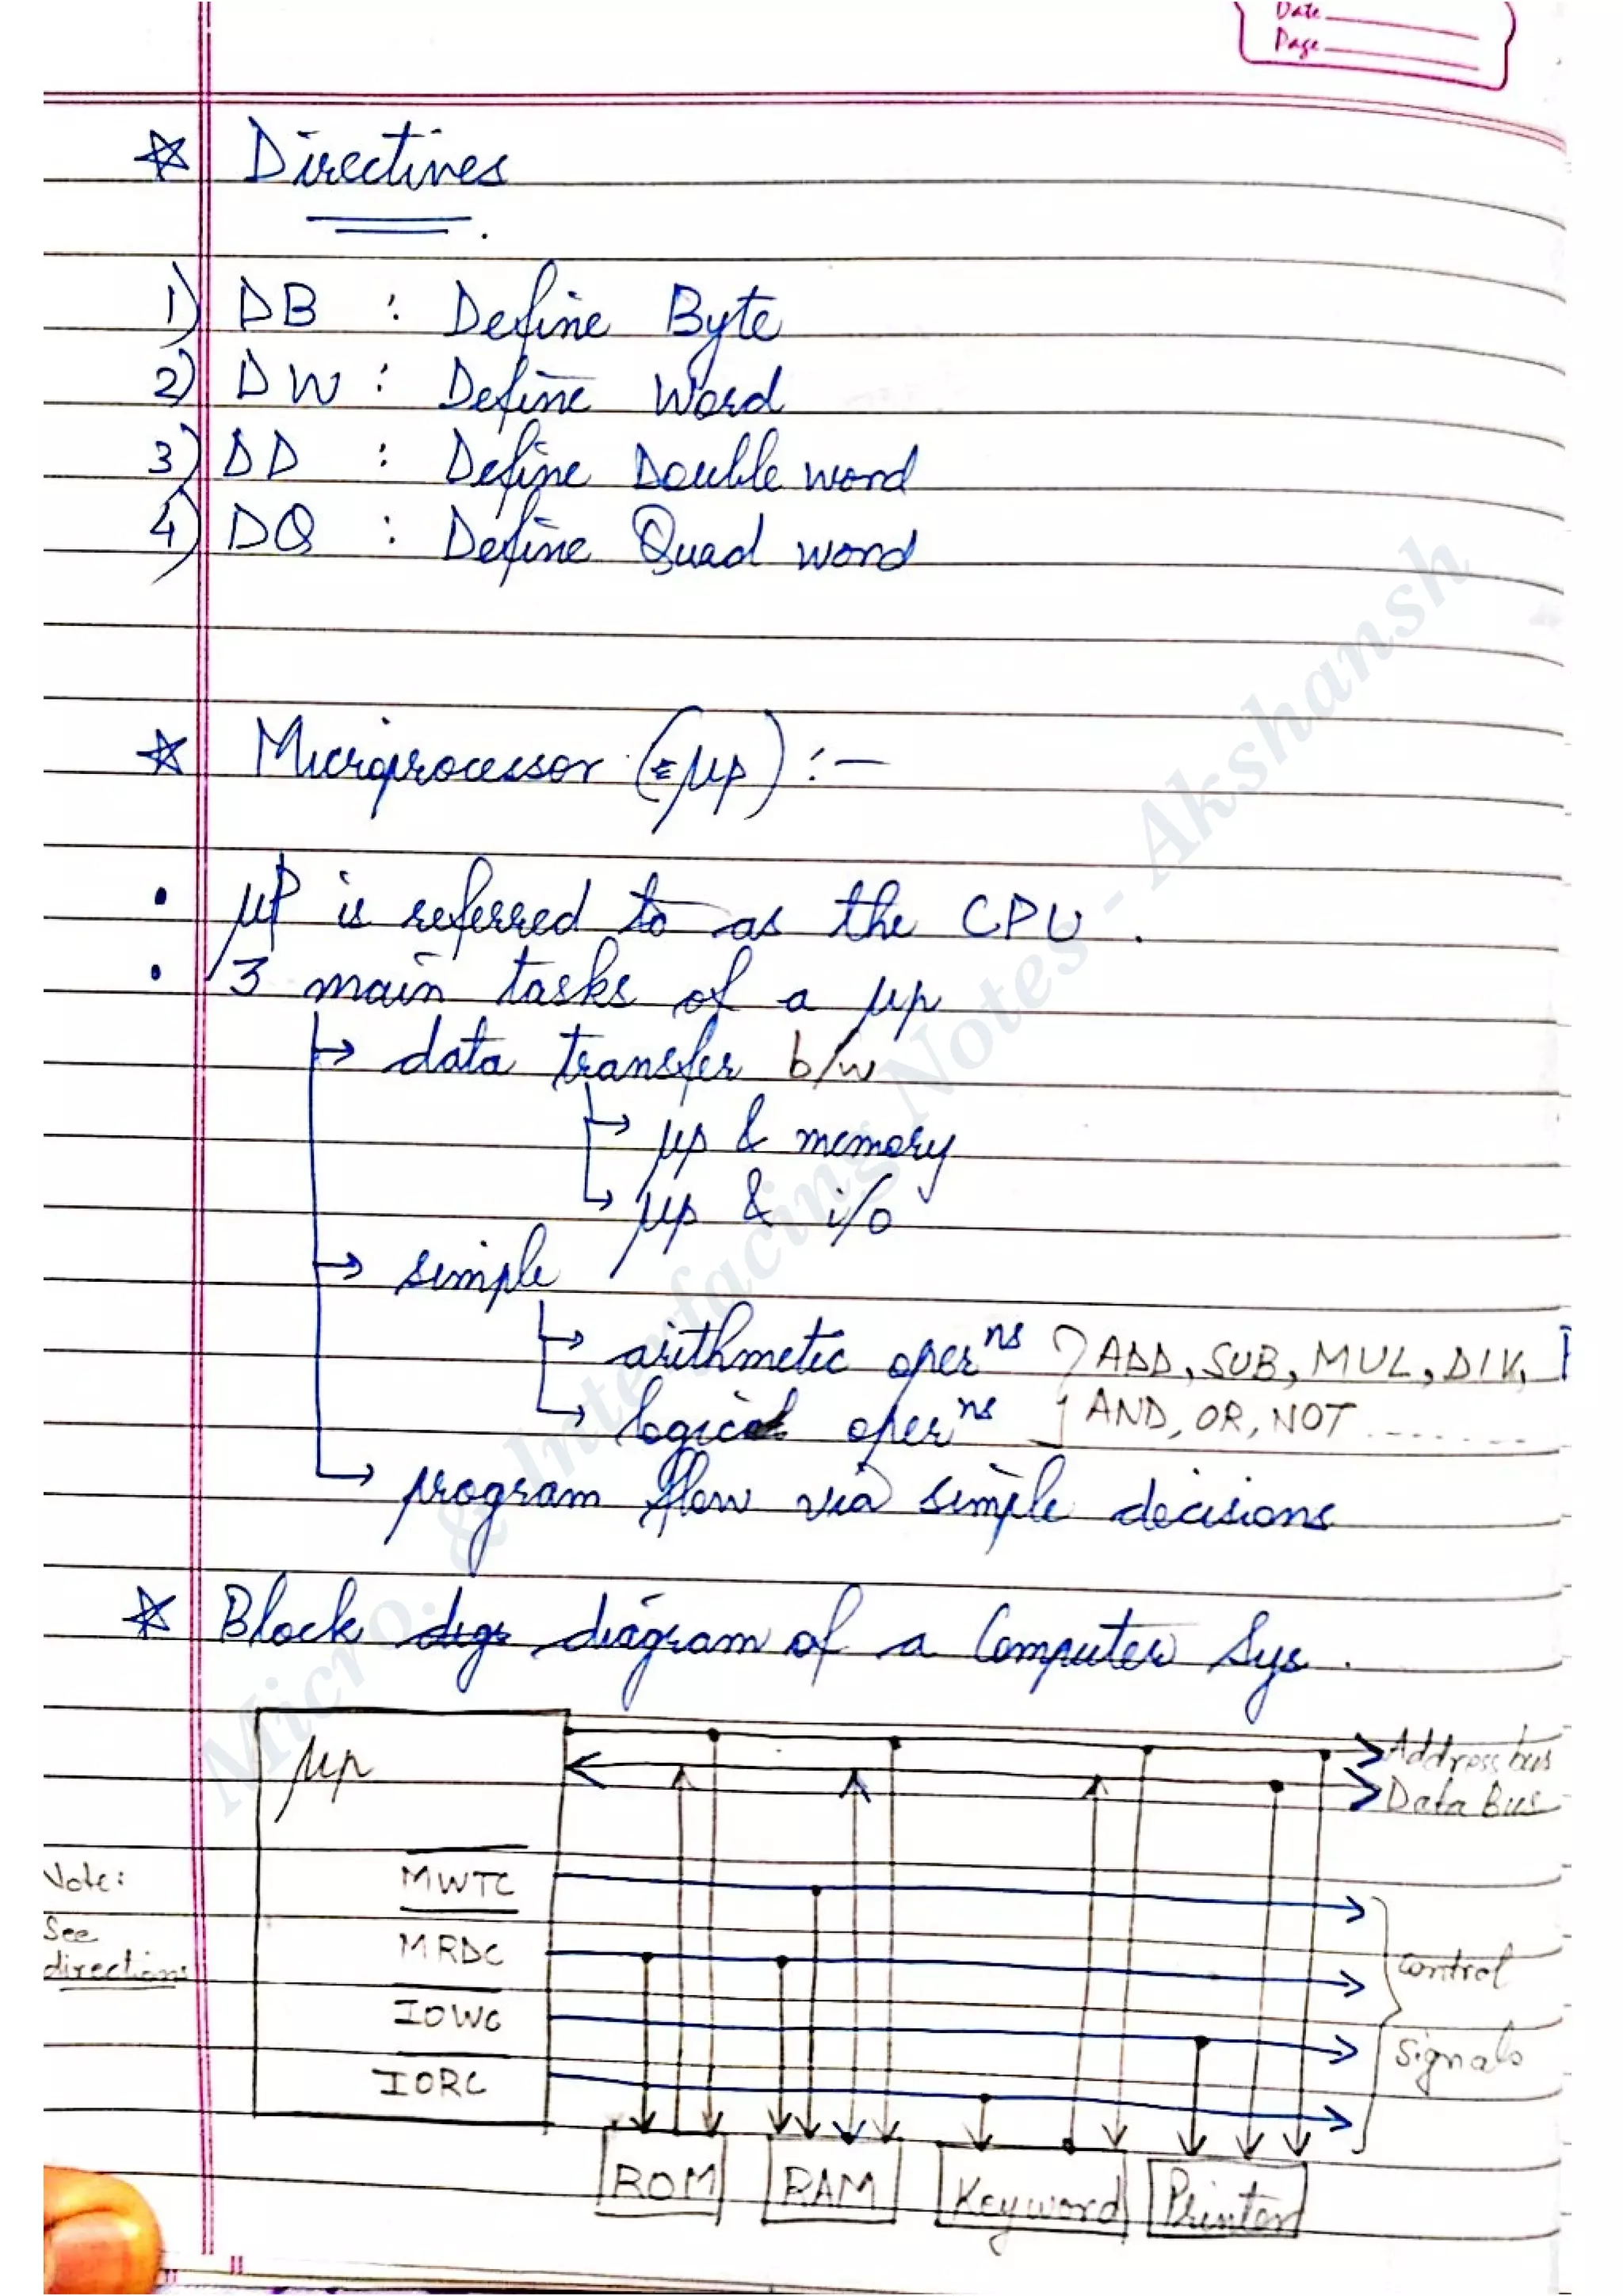 Date
Page
☆ Directives
1) DB : Define Byte
2) DW : Define Word
3) DD : Define Double word
4) DQ : Define Quad word
☆ Microprocessor (= μp) :-
• μP is referred to as the CPU.
• 3 main tasks of a μp
↳ data transfer b/w
↳ μp & memory
↳ μp & i/o
↳ simple
↳ arithmetic oper ns } ADD, SUB, MUL, DIV,
↳ logical oper ns } AND, OR, NOT .......
↳ program flow via simple decisions
☆ Block diagram of a Computer Sys.
μp
Address bus
Data Bus
Note:
See
directions
MWTC
MRDC
IOWC
IORC
Control
Signals
ROM
RAM
Keyword
Printer
Micro. & Interfacing Notes - Akshansh